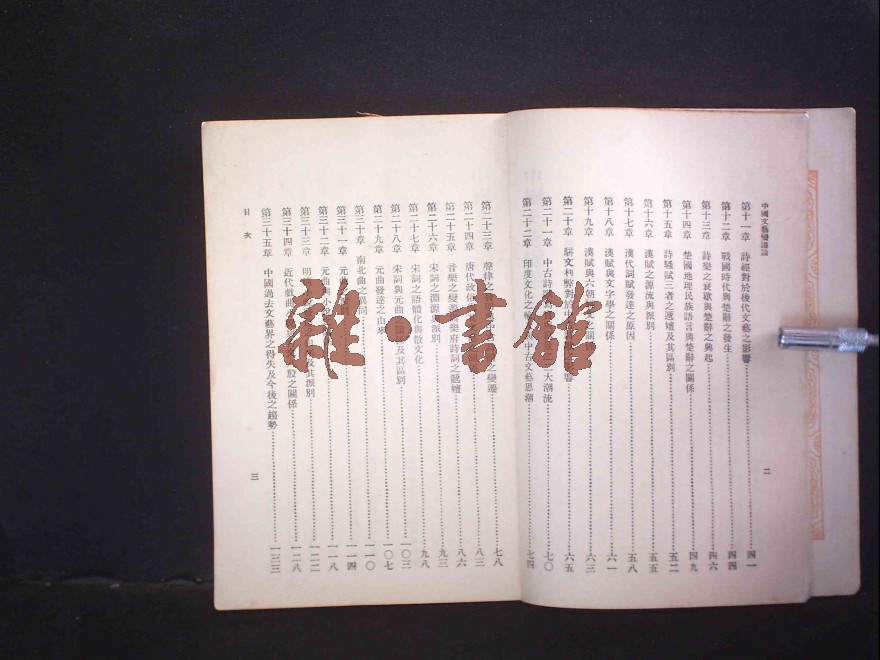 中國文藝變遷論
第十一章 詩經對於後代文藝之影響 四一
第十二章 戰國時代與楚辭之發生 四四
第十三章 詩樂之衰歇與楚辭之興起 四六
第十四章 楚國地理民族語言與楚辭之關係 四九
第十五章 詩騷賦三者之遞嬗及其區別 五二
第十六章 漢賦之源流與派別 五五
第十七章 漢代詞賦發達之原因 五八
第十八章 漢賦與文字學之關係 六一
第十九章 漢賦與六朝之關 六三
第二十章 駢文利弊對於中影響 六五
第二十一章 中古詩之二大潮流 七〇
第二十二章 印度文化之中古文藝思潮 七四
二
第二十三章 聲律之之變遷 七八
第二十四章 唐代政俗 八三
第二十五章 音樂之變遷與樂府詩詞之遞嬗 八六
第二十六章 宋詞之淵源與派別 九三
第二十七章 宋詞之語體化與散文化 九八
第二十八章 宋詞與元曲之及其區別 一〇三
第二十九章 元曲發達之由來 一〇七
第三十章 南北曲之異同 一一〇
第三十一章 元曲 一一四
第三十二章 元曲與小 一一八
第三十三章 明及其派別 一二二
第三十四章 近代戲曲小八股之關係 一二八
第三十五章 中國過去文藝界之得失及今後之趨勢 一三三
目次
三
雜·書館